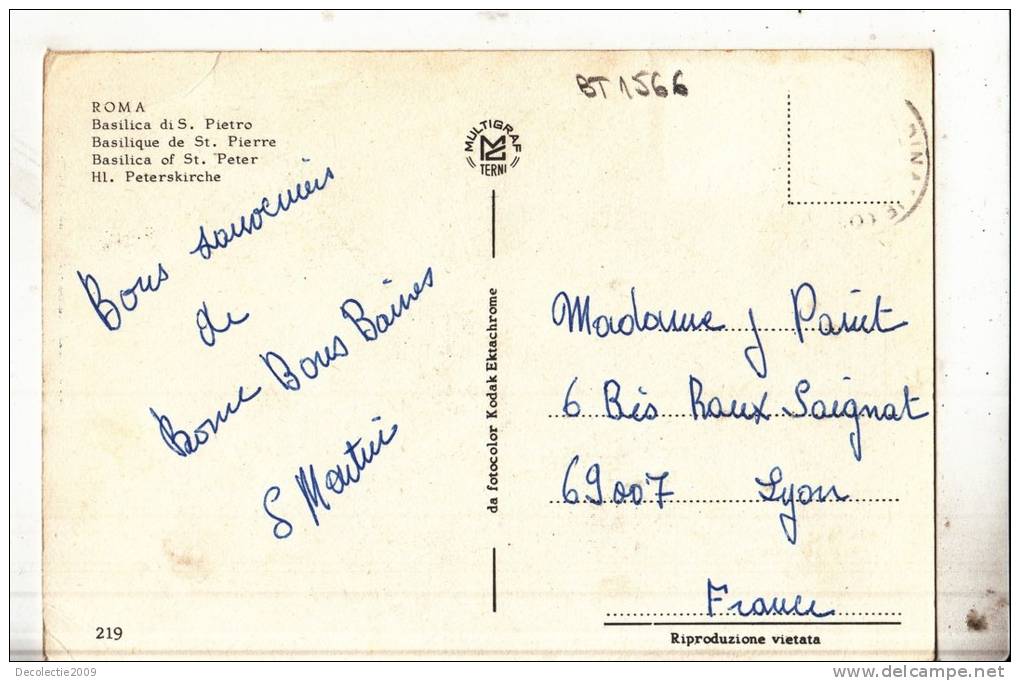 BT 1566
ROMA
Basilica di S. Pietro
Basilique de St. Pierre
Basilica of St. Peter
Hl. Peterskirche
MULTIGRAF
TERNI
Bons souvenirs
de
Rome Bons Baises
S Martin
da fotocolor Kodak Ektachrome
Madame J
6 Bis Raux Saignat
69007 Lyon
France
Riproduzione vietata
219
Decolectie2009
www.delcampe.net